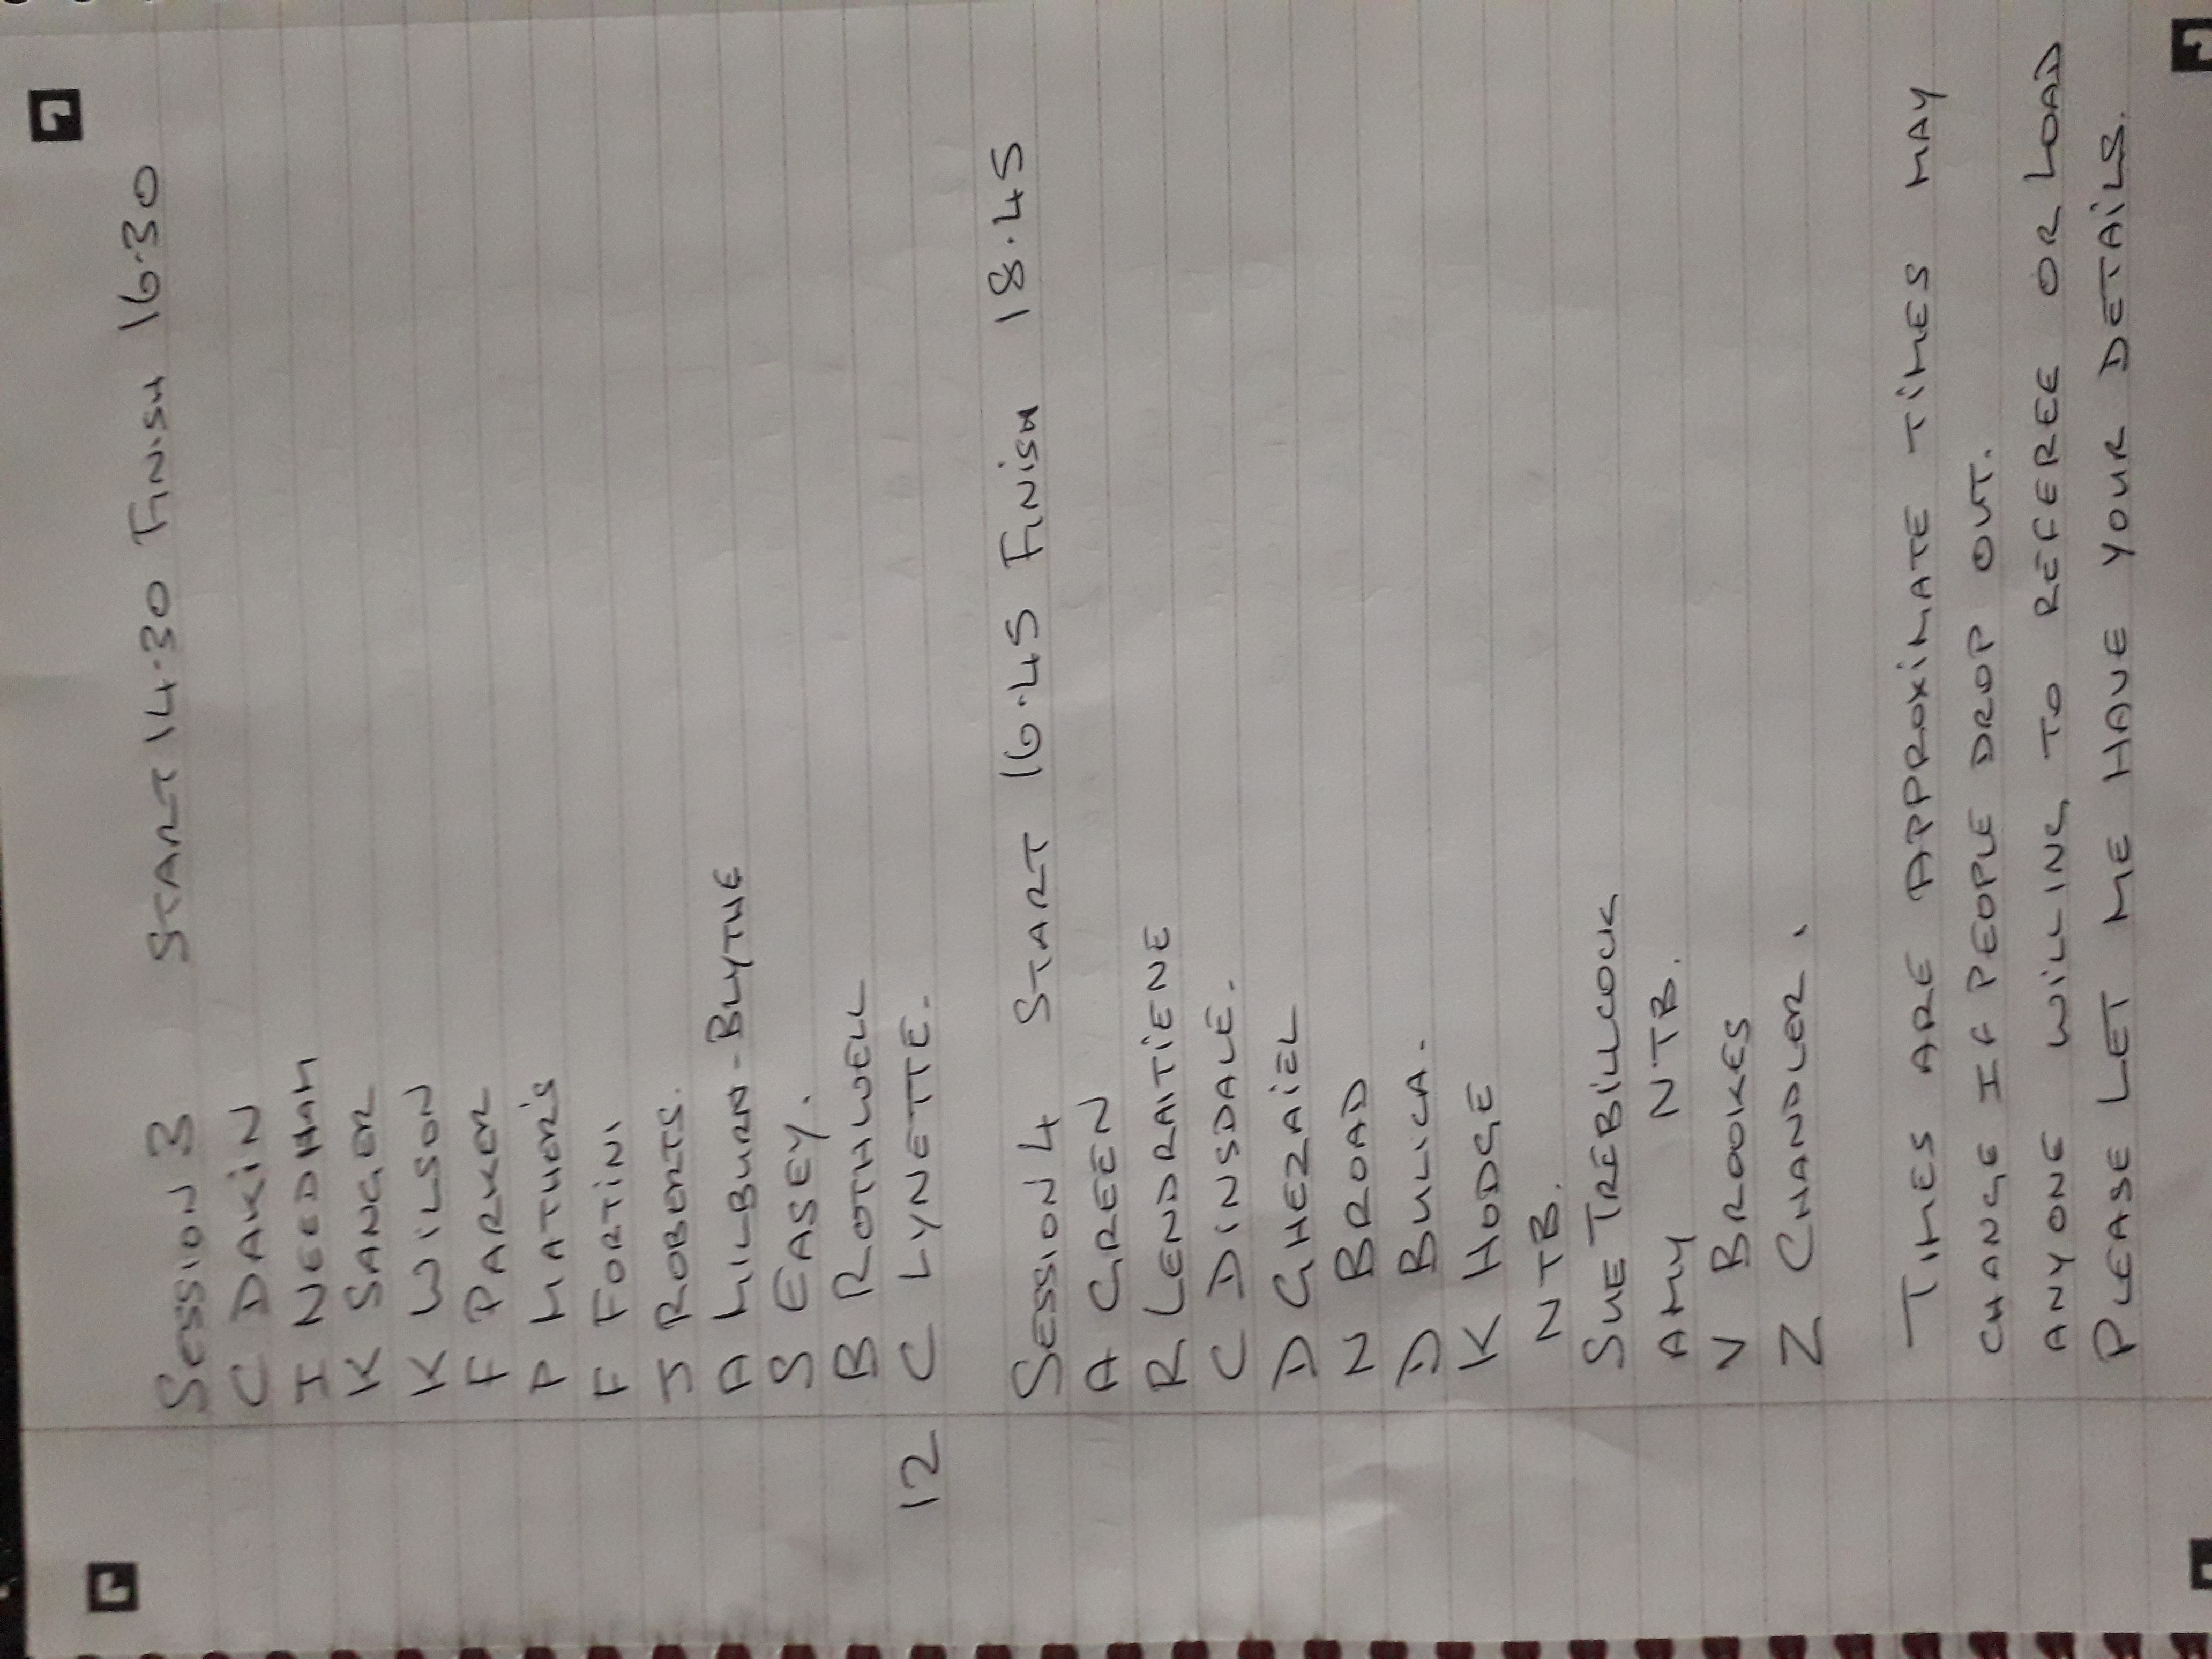 SESSION 3 START 14.30 FINISH 16.30
C DAKIN
I NEEDHAM
K SANGER
K WILSON
F PARKER
P MATHOR'S
F FORTINI
J ROBERTS.
A MILBURN-BLYTHE
S EASEY.
B ROTHWELL
12 C LYNETTE.
SESSION 4 START 16.45 FINISH 18.45
A GREEN
R LENDRAITIENE
C DINSDALE.
D GHEZAIEL
N BROAD
D BULICA.
K HODGE
NTB.
SUE TREBILLCOCK
AMY NTB.
V BROOKES
Z CHANDLER.
TIMES ARE APPROXIMATE TIMES MAY
CHANGE IF PEOPLE DROP OUT.
ANYONE WILLING TO REFEREE OR LOAD
PLEASE LET ME HAVE YOUR DETAILS.